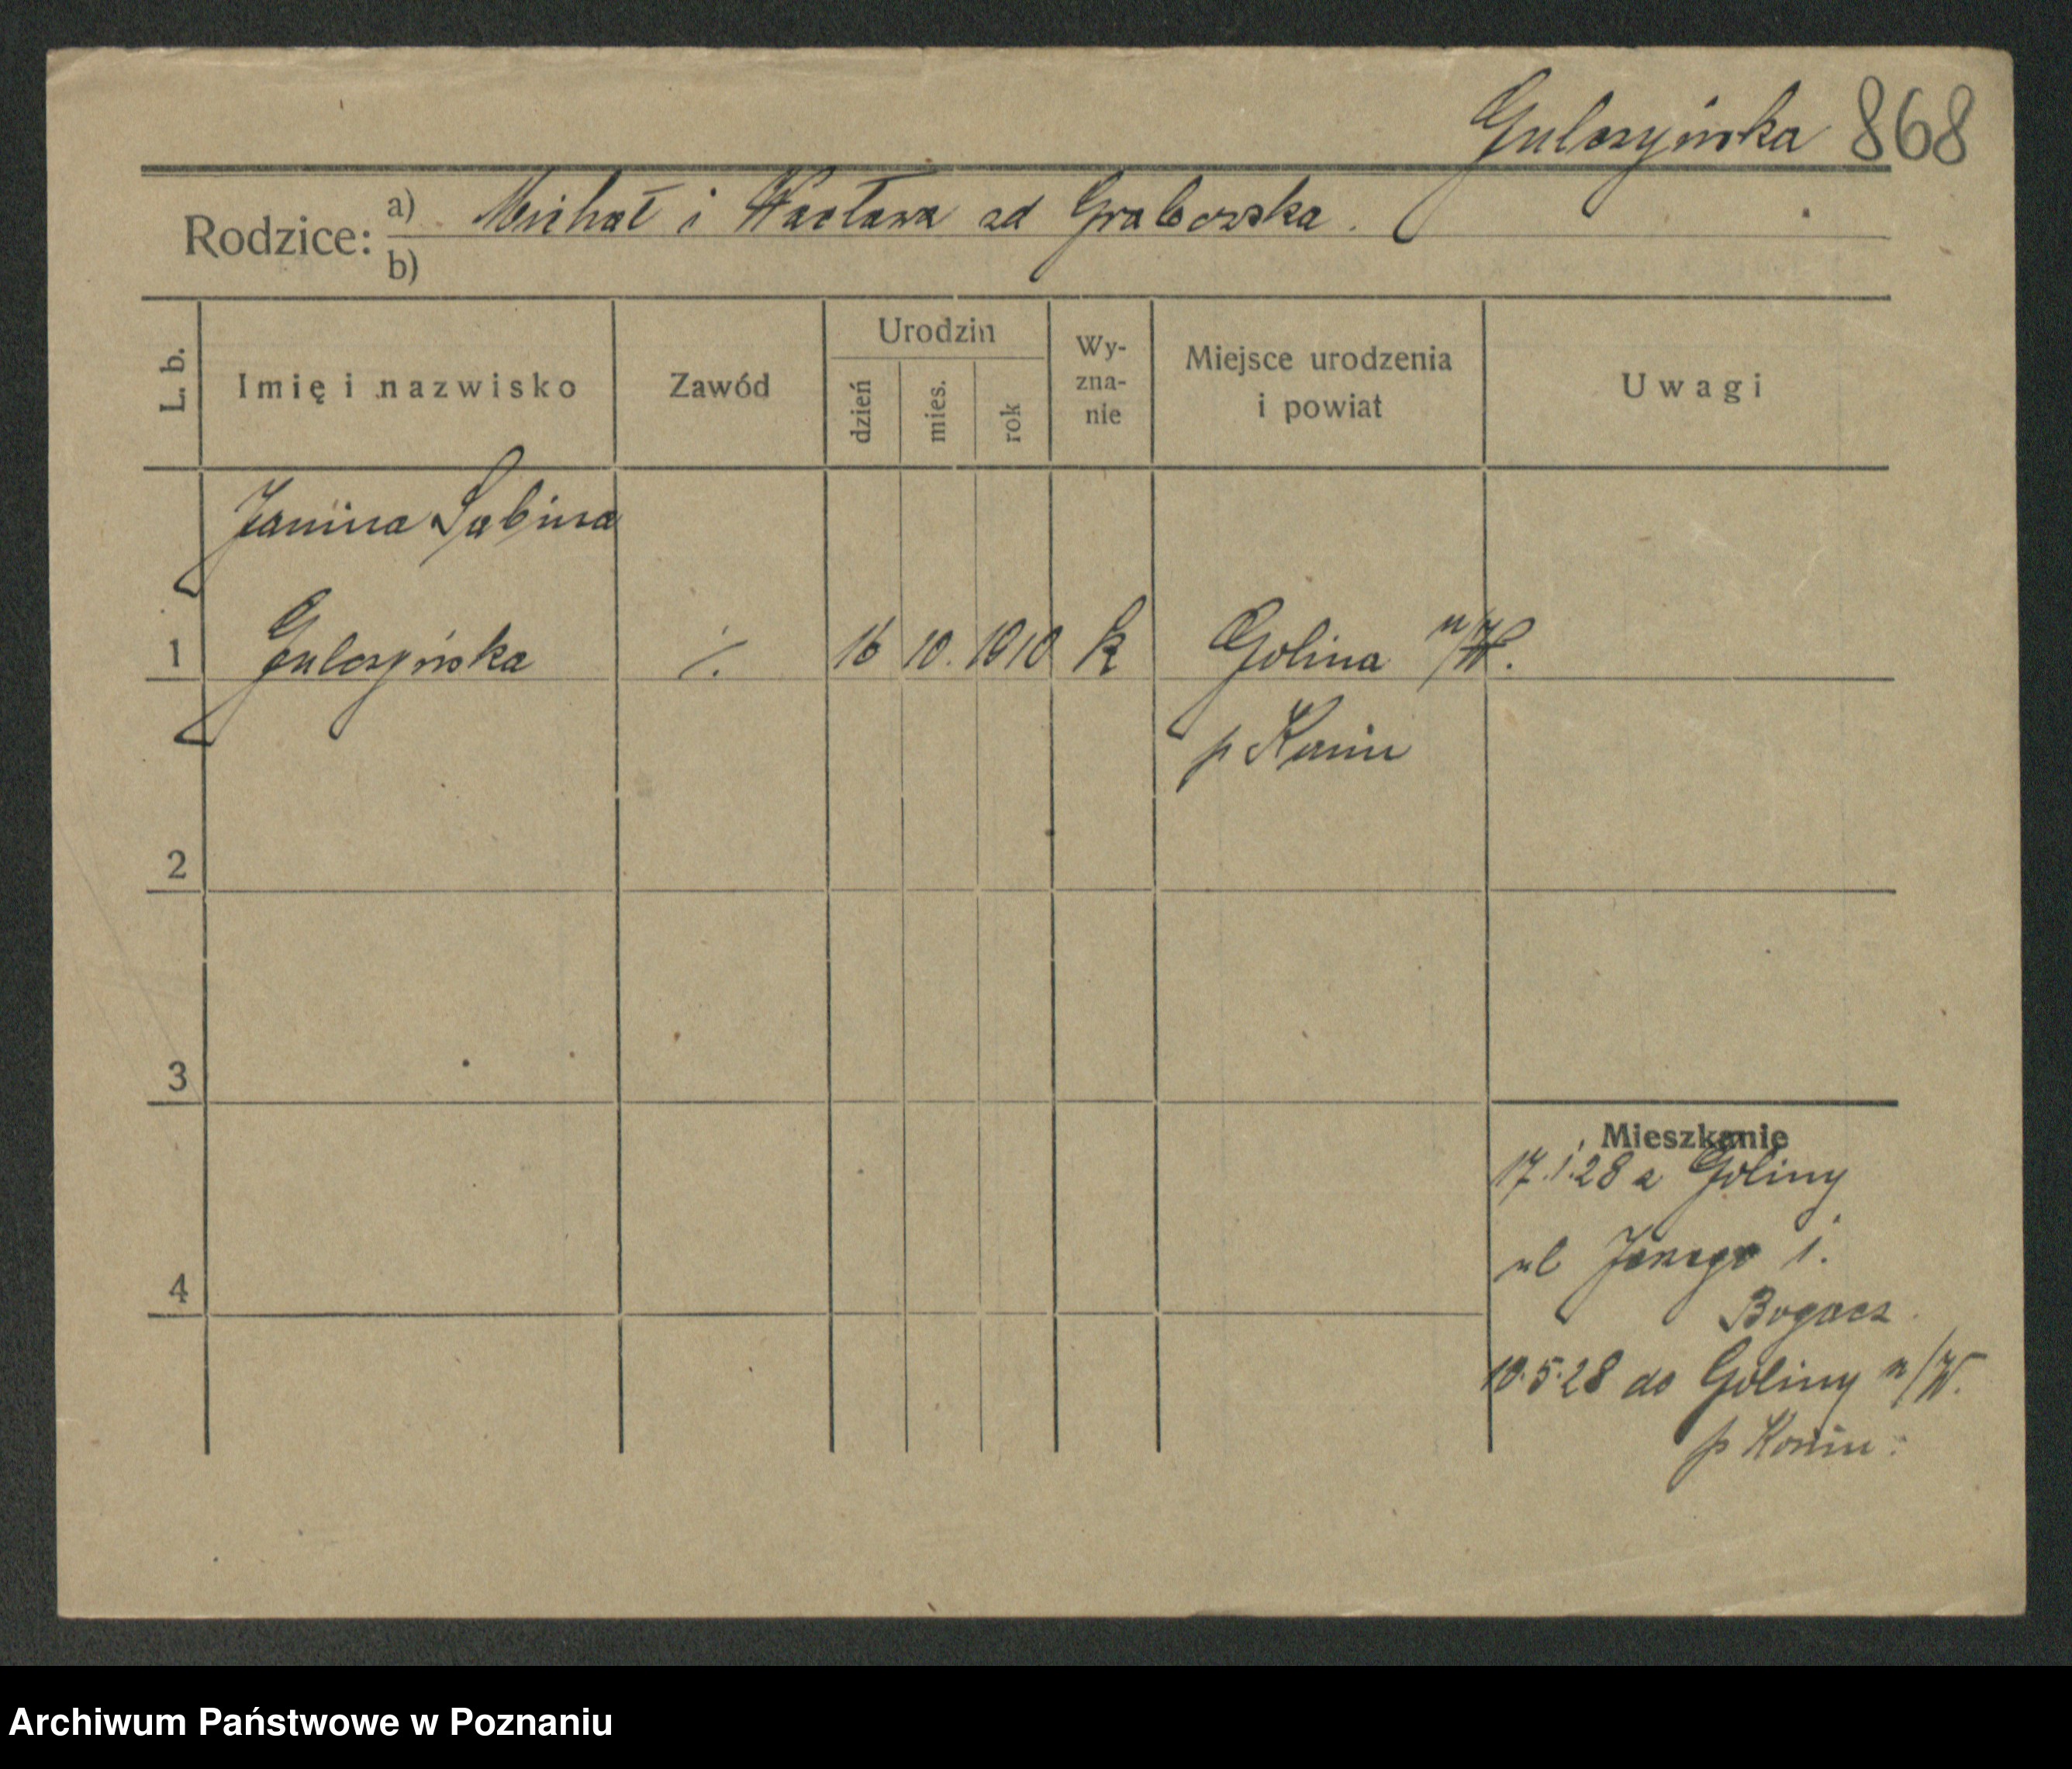 Gulczyńska 868
Rodzice: a) Michał i Wacława zd Grabowska.
b)
L. b.
Imię i nazwisko
Zawód
Urodzin
dzień
mies.
rok
Wy-
zna-
nie
Miejsce urodzenia
i powiat
Uwagi
Janina Sabina
1 Gulczyńska ./. 16 10. 1910 k Golina n/W.
p Konin
2
3
4
Mieszkanie
17.1.28 z Goliny
ul 1.
Bogacz
10.5.28 do Goliny n/W.
p Konin
Archiwum Państwowe w Poznaniu